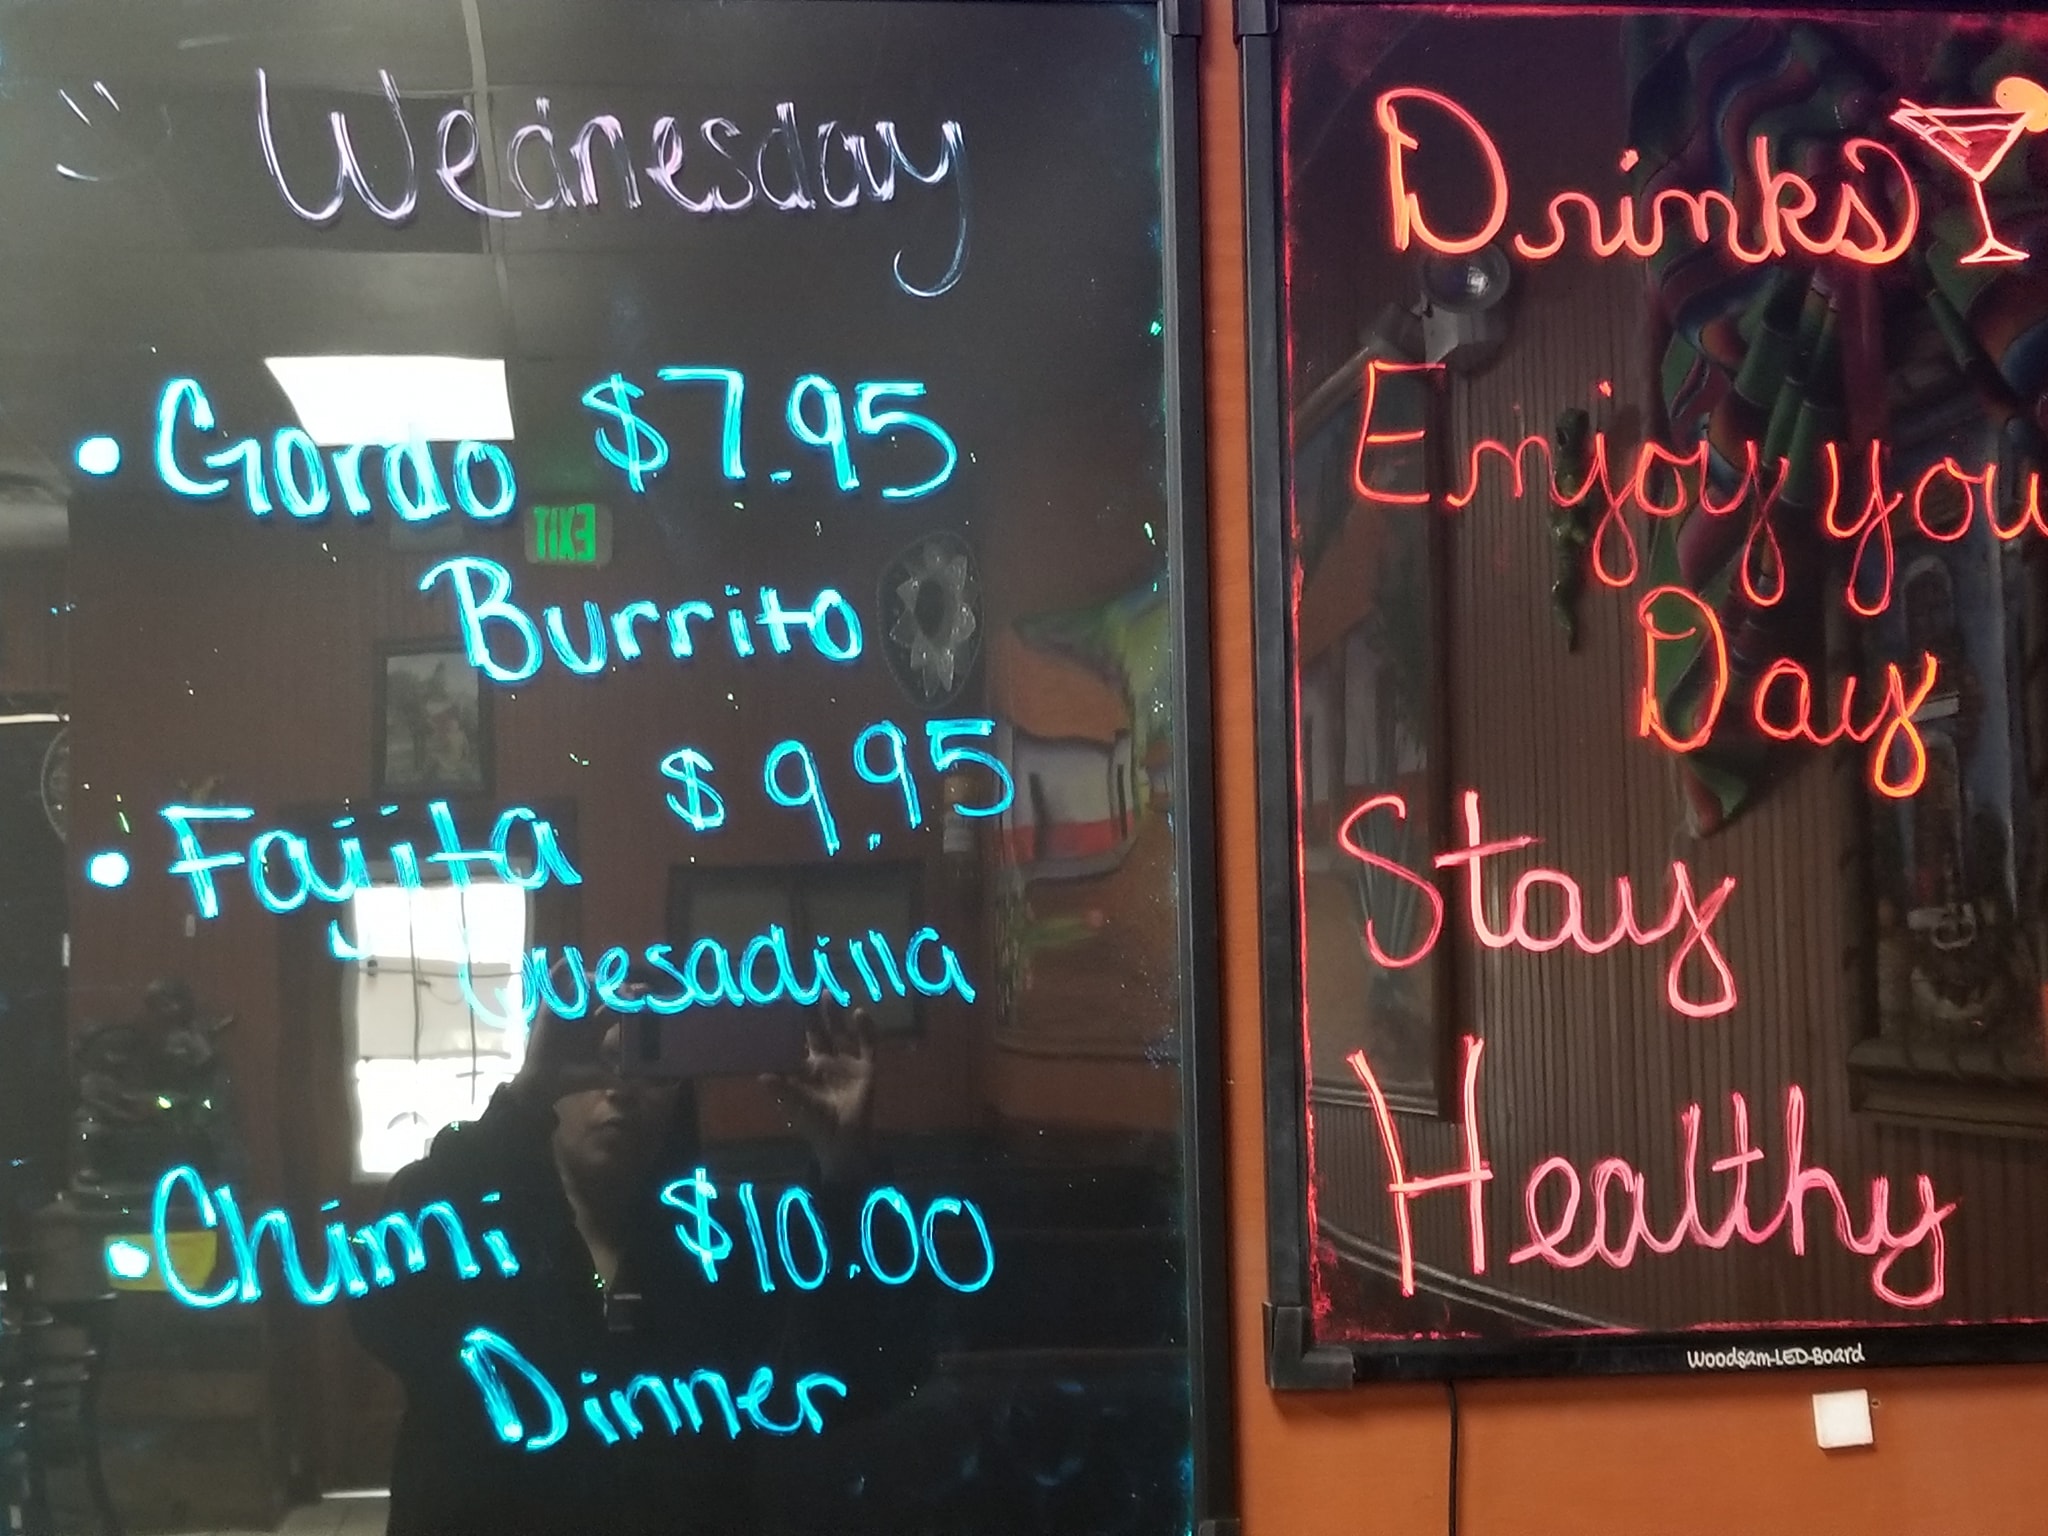 Wednesday
• Gordo $7.95
Burrito
• Fajita $9.95
Quesadilla
• Chimi $10.00
Dinner
EXIT
Drinks
Enjoy you
Day
Stay
Healthy
Woodsam-LED-Board